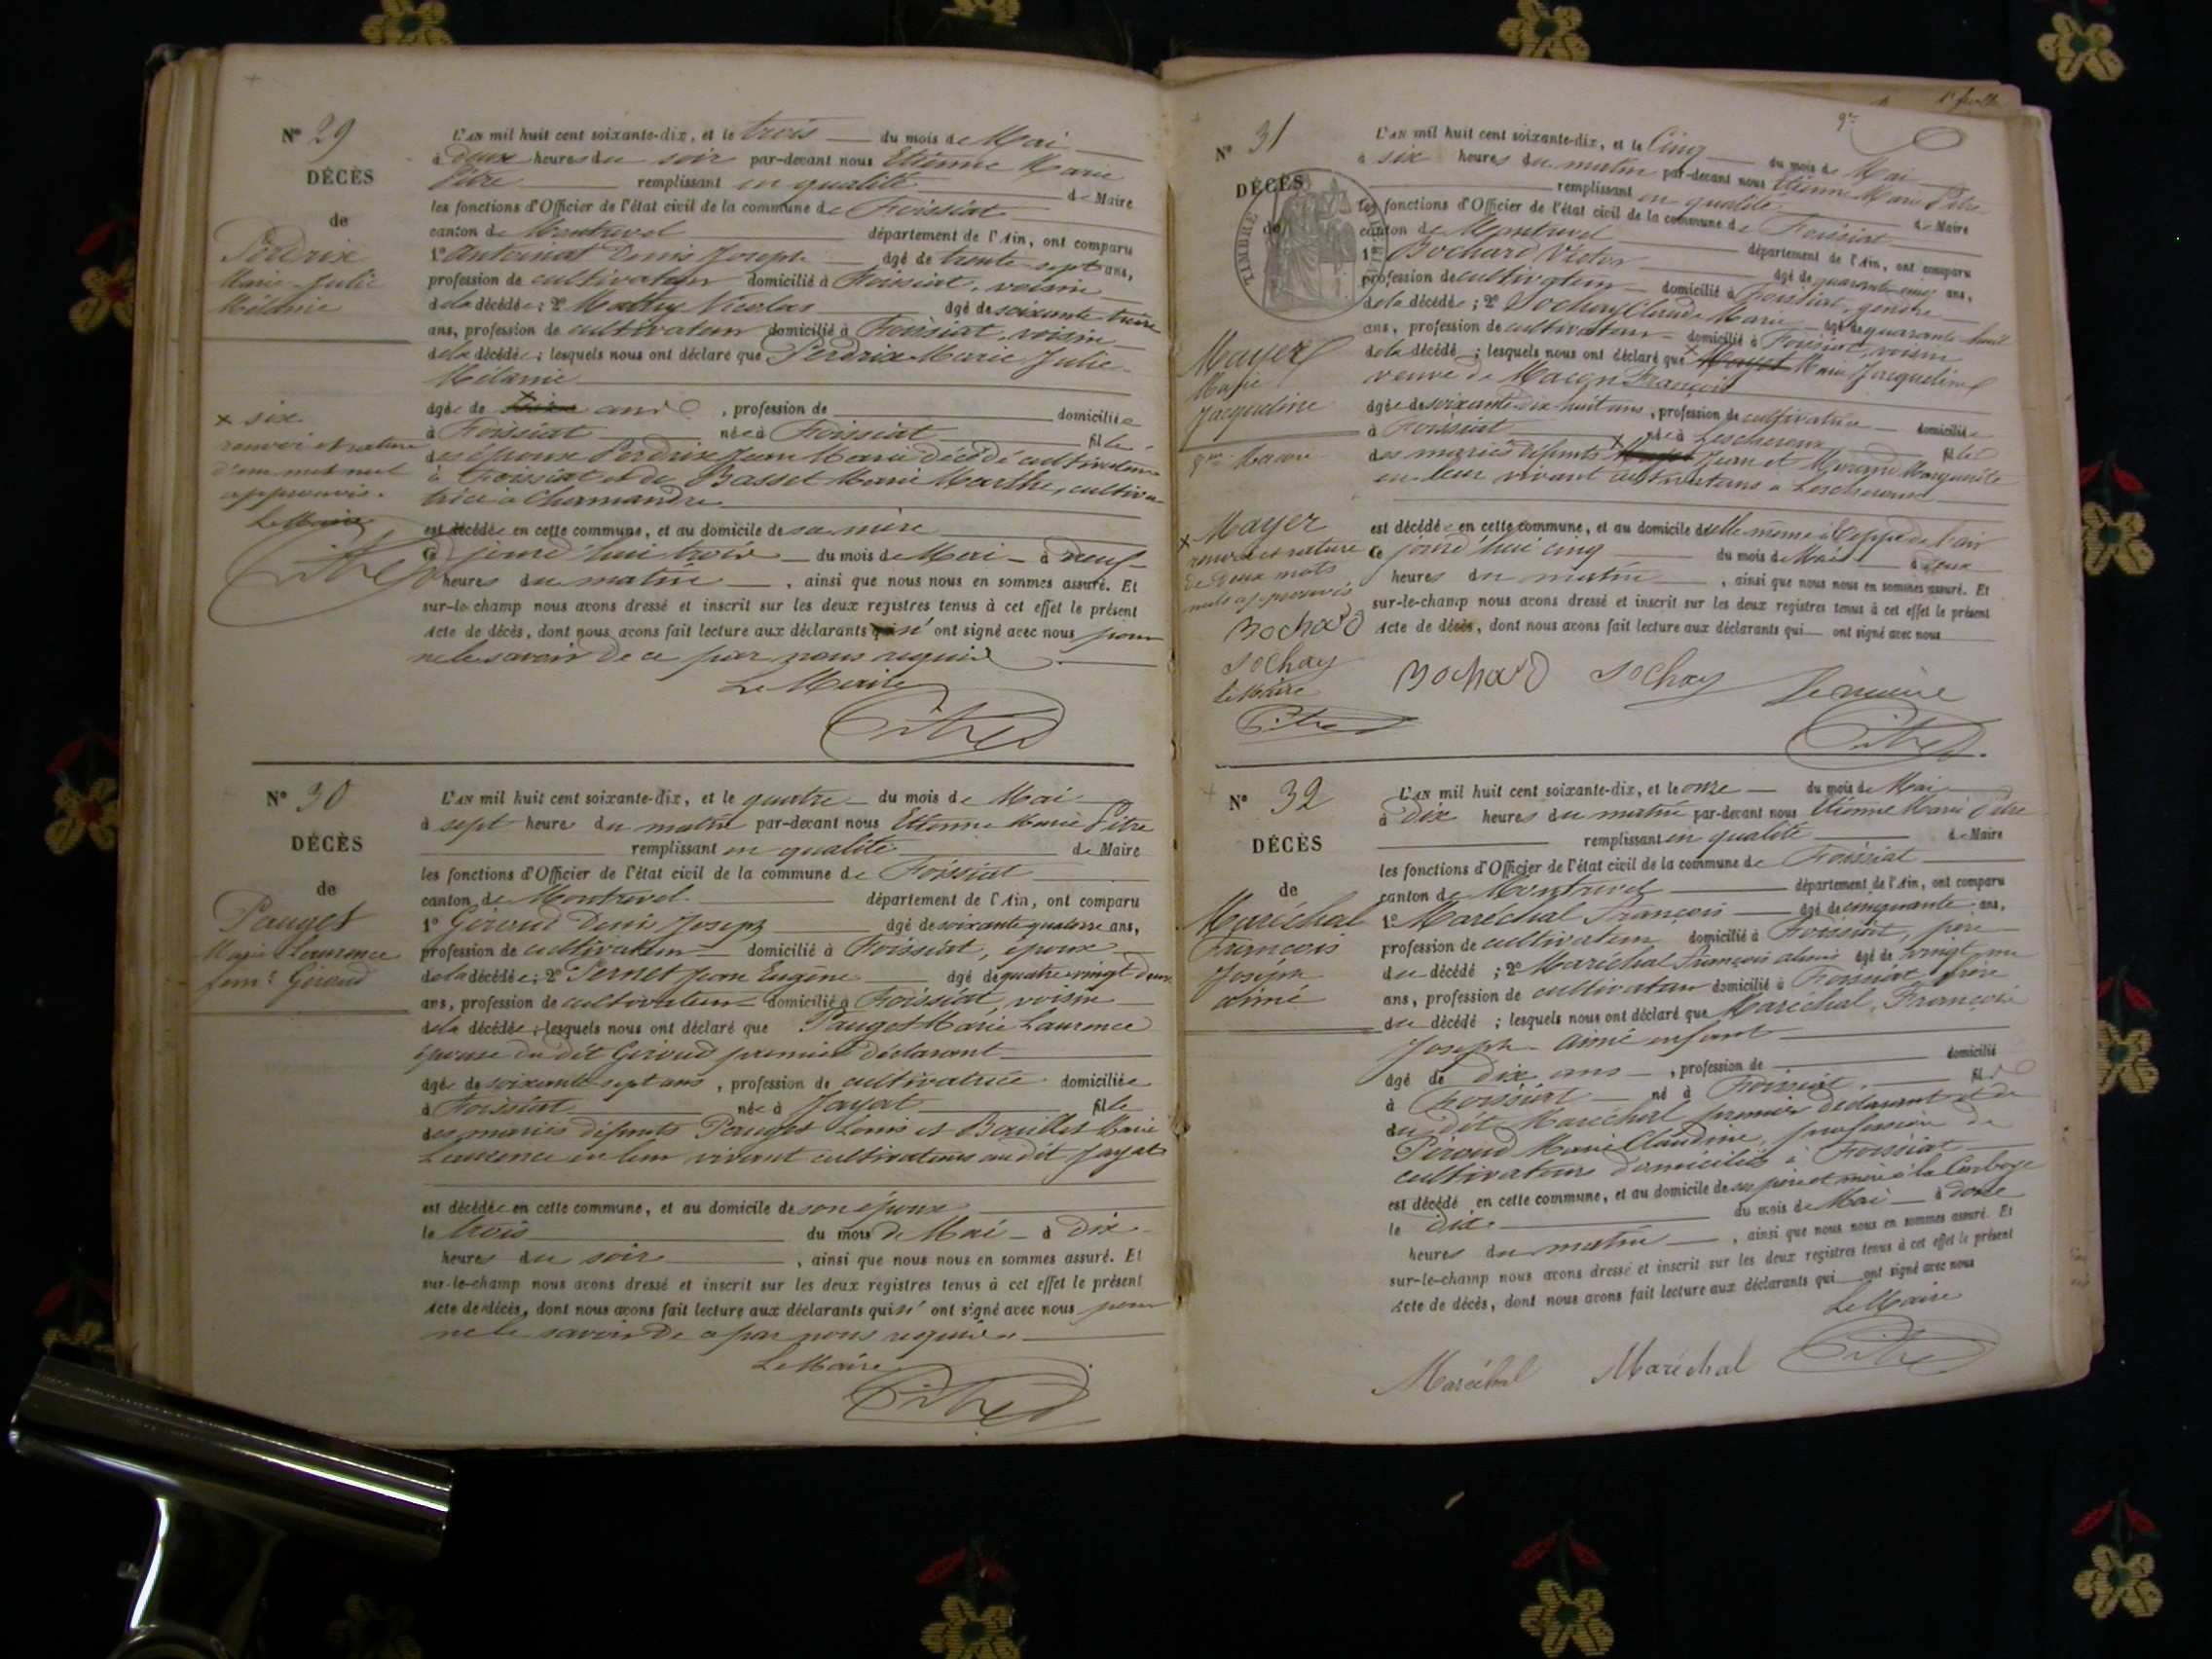 N° 29
DÉCÈS
de
Perdrix
Marie-Julie
Mélanie
x six
renvoi et rature
d'un mot nul
approuvés.
Le Maire
Pitre
L'AN mil huit cent soixante-dix, et le trois du mois de Mai
à deux heures du soir par-devant nous Etienne Marie
Pitre remplissant en qualité de Maire
les fonctions d'Officier de l'état civil de la commune de Foissiat
canton de Montrevel département de l'Ain, ont comparu
1° Antoinat Denis Joseph âgé de trente-sept ans,
profession de cultivateur domicilié à Foissiat, voisin
de la décédée; 2° Nicolas âgé de soixante-treize
ans, profession de cultivateur domicilié à Foissiat, voisin
de la décédée; lesquels nous ont déclaré que Perdrix Marie Julie
Mélanie
âgée de x ans, profession de domiciliée
à Foissiat née à Foissiat fille
des époux Perdrix Jean Marie décédé cultivateur
à Foissiat et de Basset Marie Marthe, cultiva-
trice à Chermandre
est décédée en cette commune, et au domicile de sa mère
Ce jourd'hui trois du mois de Mai à neuf
heures du matin, ainsi que nous nous en sommes assuré. Et
sur-le-champ nous avons dressé et inscrit sur les deux registres tenus à cet effet le présent
Acte de décès, dont nous avons fait lecture aux déclarants qui n' ont signé avec nous pour
ne le savoir de ce par nous requis
Le Maire
Pitre
N° 30
DÉCÈS
de
Pauget
Marie Laurence
fem. Giroud
L'AN mil huit cent soixante-dix, et le quatre du mois de Mai
à sept heures du matin par-devant nous Etienne Marie Pitre
remplissant en qualité de Maire
les fonctions d'Officier de l'état civil de la commune de Foissiat
canton de Montrevel département de l'Ain, ont comparu
1° Giroud Denis Joseph âgé de soixante quatorze ans,
profession de cultivateur domicilié à Foissiat, époux
de la décédée; 2° Pernet Jean Eugène âgé de quatre-vingt-deux
ans, profession de cultivateur domicilié à Foissiat, voisin
de la décédée; lesquels nous ont déclaré que Pauget Marie Laurence
épouse du dit Giroud premier déclarant
âgée de soixante-sept ans, profession de cultivatrice domiciliée
à Foissiat née à Jayat fille
des mariés défunts Pauget Louis et Bouillet Marie
Laurence en leur vivant cultivateurs au dit Jayat
est décédée en cette commune, et au domicile de son époux
le trois du mois de Mai à dix
heures du soir, ainsi que nous nous en sommes assuré. Et
sur-le-champ nous avons dressé et inscrit sur les deux registres tenus à cet effet le présent
Acte de décès, dont nous avons fait lecture aux déclarants qui n' ont signé avec nous pour
ne le savoir de ce par nous requis
Le Maire
Pitre
N° 31
DÉCÈS
de
TIMBRE
Mayer
Marie
Jacqueline
Vve Macon
x Mayer
renvoi et rature
de deux mots
nuls approuvés
Bochard
Sochay
Le Maire
Pitre
L'AN mil huit cent soixante-dix, et le Cinq du mois de Mai
à six heures du matin par-devant nous Etienne Marie Pitre
remplissant en qualité de Maire
les fonctions d'Officier de l'état civil de la commune de Foissiat
canton de Montrevel département de l'Ain, ont comparu
1° Bochard Victor âgé de quarante-cinq ans,
profession de cultivateur domicilié à Foissiat, gendre
de la décédée; 2° Sochay Claude Marie âgé de quarante-huit
ans, profession de cultivateur domicilié à Foissiat, voisin
de la décédé; lesquels nous ont déclaré que x Marie Jacqueline
veuve de Macon François
âgée de soixante-dix-huit ans, profession de cultivatrice domiciliée
à Foissiat née à Lescheroux fille
des mariés défunts x Jean et Marguerite
en leur vivant cultivateurs à Lescheroux
est décédée en cette commune, et au domicile d'elle même à
Ce jourd'hui cinq du mois de Mai à deux
heures du matin, ainsi que nous nous en sommes assuré. Et
sur-le-champ nous avons dressé et inscrit sur les deux registres tenus à cet effet le présent
Acte de décès, dont nous avons fait lecture aux déclarants qui ont signé avec nous
Bochard Sochay Le maire
Pitre
N° 32
DÉCÈS
de
Maréchal
François
Joseph
aimé
L'AN mil huit cent soixante-dix, et le onze du mois de Mai
à dix heures du matin par-devant nous Etienne Marie Pitre
remplissant en qualité de Maire
les fonctions d'Officier de l'état civil de la commune de Foissiat
canton de Montrevel département de l'Ain, ont comparu
1° Maréchal François âgé de cinquante ans,
profession de cultivateur domicilié à Foissiat, père
du décédé; 2° Maréchal François âgé de vingt un
ans, profession de cultivateur domicilié à Foissiat, frère
du décédé; lesquels nous ont déclaré que Maréchal, François
Joseph aimé enfant
âgé de dix ans, profession de domicilié
à Foissiat né à Foissiat fils
du dit Maréchal premier déclarant et de
Péroud Marie Claudine, profession de
cultivateurs domiciliés à Foissiat
est décédé en cette commune, et au domicile de ses père et mère à la
le dix du mois de Mai à onze
heures du matin, ainsi que nous nous en sommes assuré. Et
sur-le-champ nous avons dressé et inscrit sur les deux registres tenus à cet effet le présent
Acte de décès, dont nous avons fait lecture aux déclarants qui ont signé avec nous
Le Maire
Maréchal Maréchal Pitre